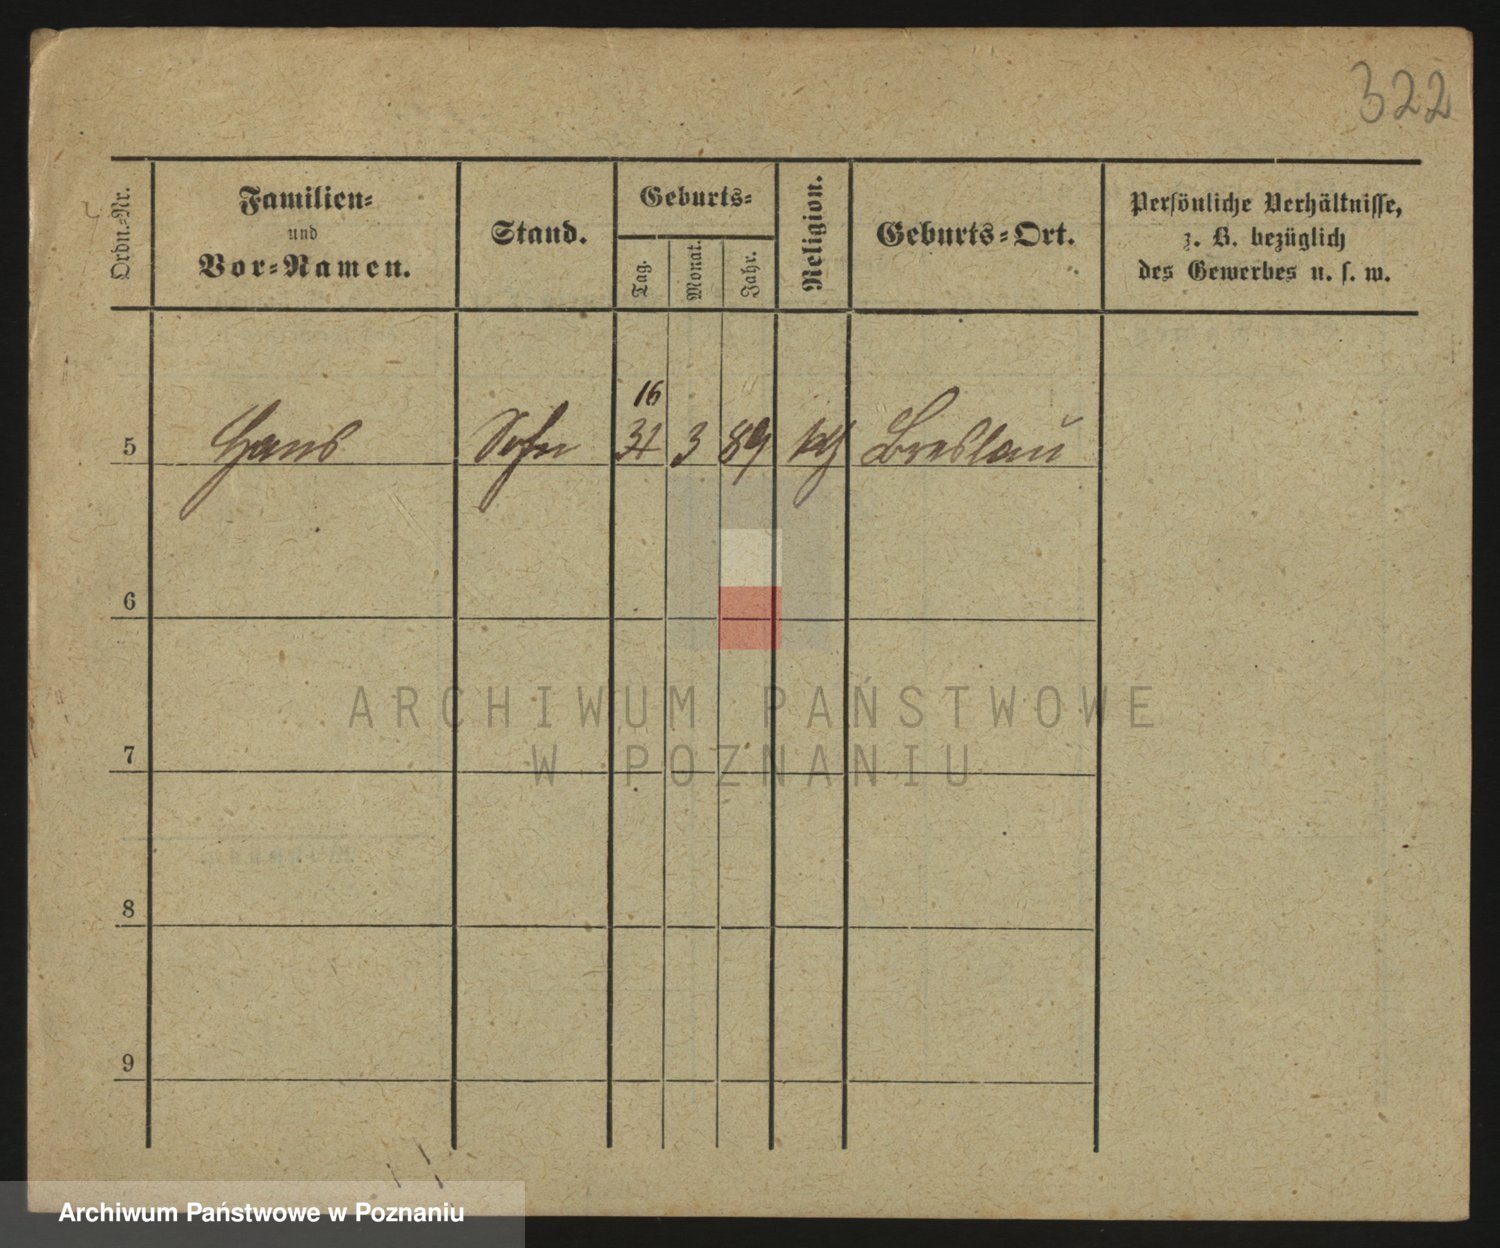 322
Ordn.-Nr.
Familien-
und
Vor-Namen.
Stand.
Geburts-
Tag.
Monat.
Jahr.
Religion.
Geburts-Ort.
Persönliche Verhältnisse,
z. B. bezüglich
des Gewerbes u. s. w.
16
5 Hans Sohn 31 3 89 kth Breslau
6
7
8
9
ARCHIWUM PAŃSTWOWE
W POZNANIU
Archiwum Państwowe w Poznaniu